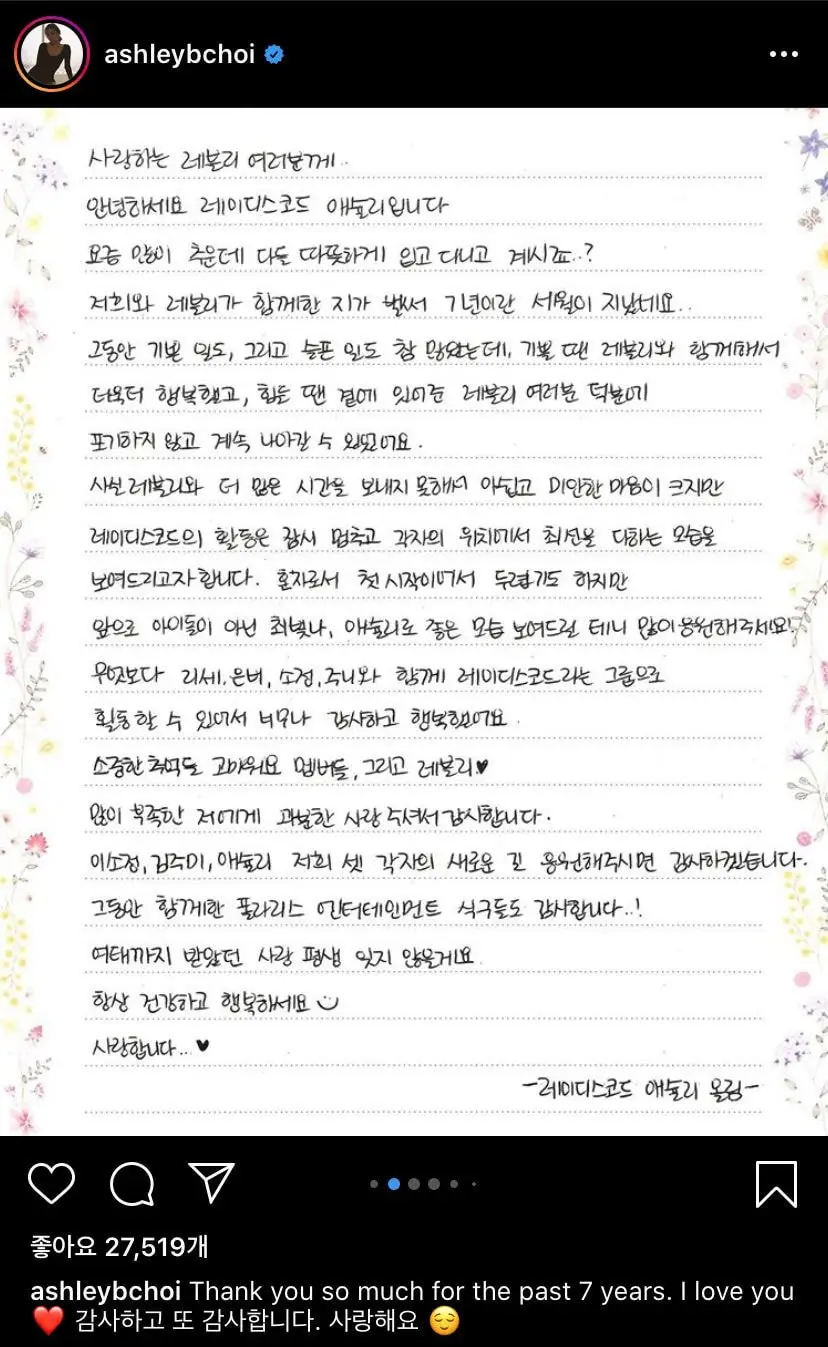 ashleybchoi
사랑하는 레블리 여러분께..
안녕하세요 레이디스코드 애슐리입니다
요즘 많이 추운데 다들 따뜻하게 입고 다니고 계시죠..?
저희와 레블리가 함께한 지가 벌써 7년이란 세월이 지났네요..
그동안 기쁜 일도, 그리고 슬픈 일도 참 많았는데, 기쁠 땐 레블리와 함께해서
더욱더 행복했고, 힘든 땐 곁에 있어준 레블리 여러분 덕분에
포기하지 않고 계속 나아갈 수 있었어요.
사실 레블리와 더 많은 시간을 보내지 못해서 아쉽고 미안한 마음이 크지만
레이디스코드의 활동은 잠시 멈추고 각자의 위치에서 최선을 다하는 모습을
보여드리고자 합니다. 혼자로서 첫 시작이여서 두렵기도 하지만
앞으로 아이돌이 아닌 최빛나, 애슐리로 좋은 모습 보여드릴 테니 많이 응원해주세요!
무엇보다 리세, 은비, 소정, 주니와 함께 레이디스코드라는 그룹으로
활동할 수 있어서 너무나 감사하고 행복했어요.
소중한 추억들 고마워요 멤버들, 그리고 레블리♥
많이 부족한 저에게 과분한 사랑 주셔서 감사합니다.
이소정, 김주미, 애슐리 저희 셋 각자의 새로운 길 응원해주시면 감사하겠습니다.
그동안 함께한 폴라리스 엔터테인먼트 식구들도 감사합니다..!
여태까지 받았던 사랑 평생 잊지 않을게요
항상 건강하고 행복하세요
사랑합니다... ♥
-레이디스코드 애슐리 올림-
좋아요 27,519개
ashleybchoi Thank you so much for the past 7 years. I love you
❤️ 감사하고 또 감사합니다. 사랑해요 😌